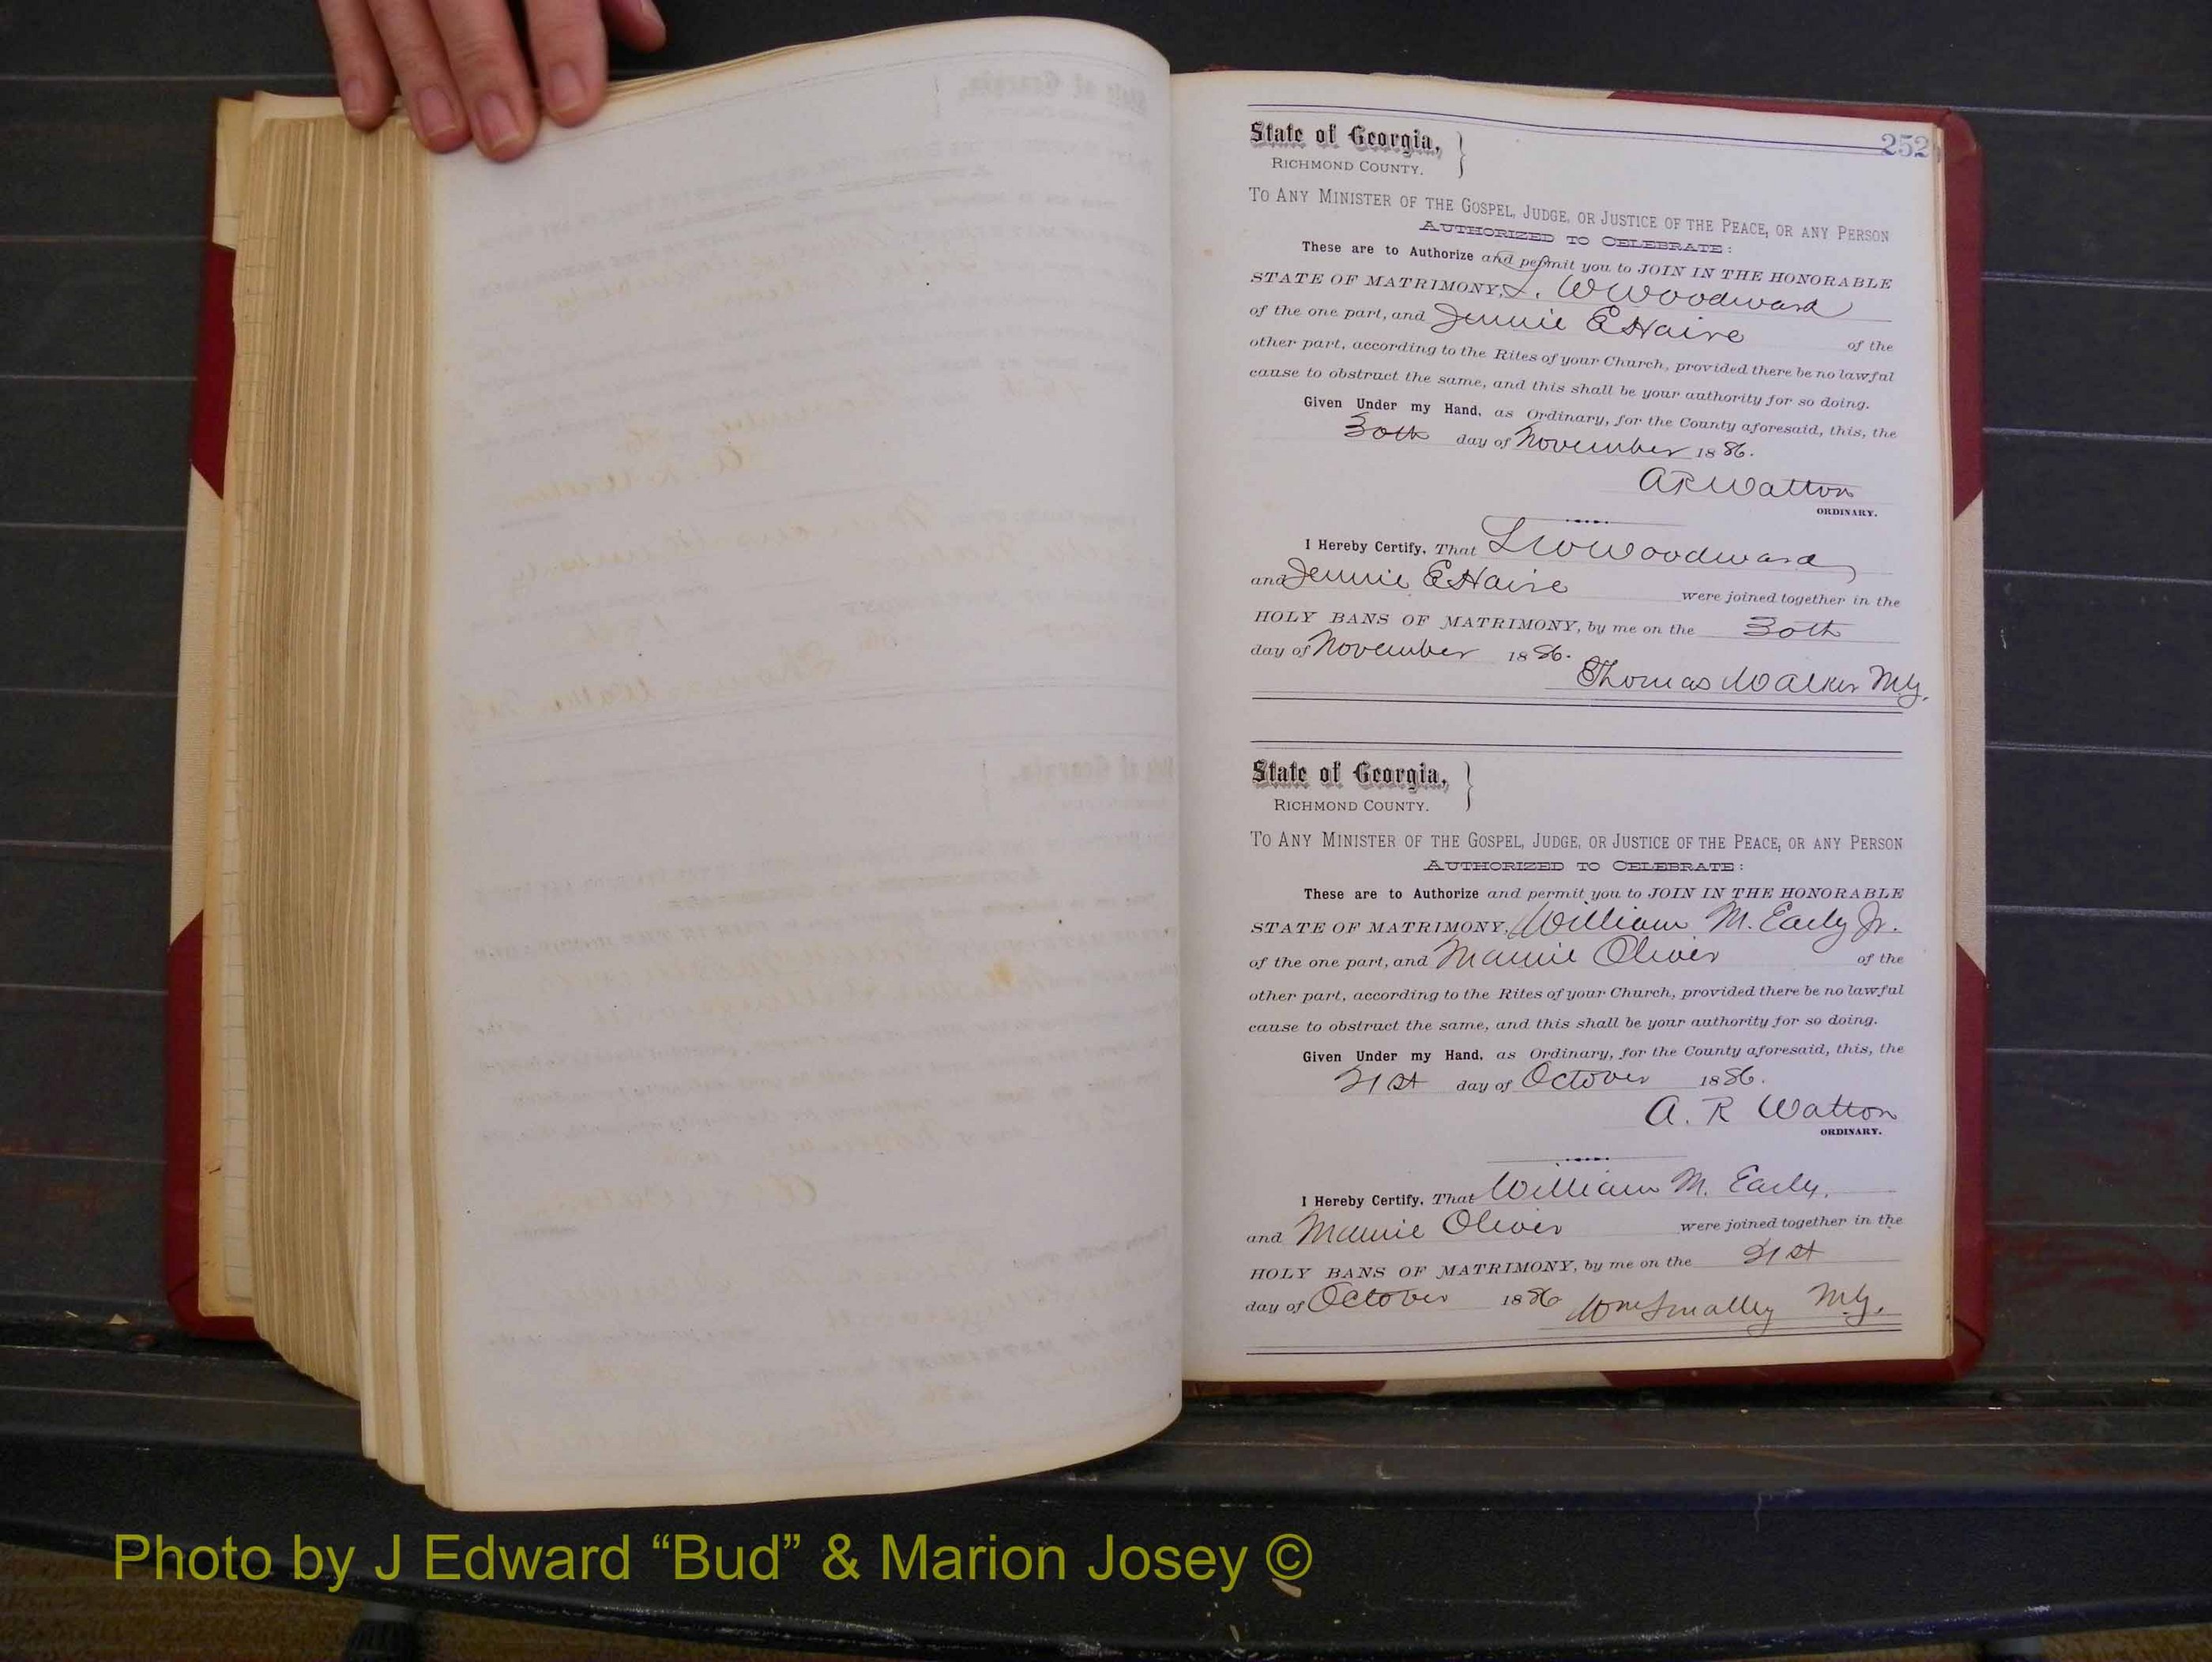 252
State of Georgia,
RICHMOND COUNTY.
TO ANY MINISTER OF THE GOSPEL, JUDGE, OR JUSTICE OF THE PEACE, OR ANY PERSON
AUTHORIZED TO CELEBRATE:
These are to Authorize and permit you to JOIN IN THE HONORABLE
STATE OF MATRIMONY, L. W Woodward
of the one part, and Jennie E Haire of the
other part, according to the Rites of your Church, provided there be no lawful
cause to obstruct the same, and this shall be your authority for so doing.
Given Under my Hand, as Ordinary, for the County aforesaid, this, the
30th day of November 1886.
A R Walton
ORDINARY.
I Hereby Certify, That L W Woodward
and Jennie E Haire were joined together in the
HOLY BANS OF MATRIMONY, by me on the 30th
day of November 1886.
Thomas Walker M.G.
State of Georgia,
RICHMOND COUNTY.
TO ANY MINISTER OF THE GOSPEL, JUDGE, OR JUSTICE OF THE PEACE, OR ANY PERSON
AUTHORIZED TO CELEBRATE:
These are to Authorize and permit you to JOIN IN THE HONORABLE
STATE OF MATRIMONY, William M. Early Jr.
of the one part, and Mamie Oliver of the
other part, according to the Rites of your Church, provided there be no lawful
cause to obstruct the same, and this shall be your authority for so doing.
Given Under my Hand, as Ordinary, for the County aforesaid, this, the
21st day of October 1886.
A. R Walton
ORDINARY.
I Hereby Certify, That William M. Early,
and Mamie Oliver were joined together in the
HOLY BANS OF MATRIMONY, by me on the 21st
day of October 1886 Wm Smalley M.G.
Photo by J Edward “Bud” & Marion Josey ©